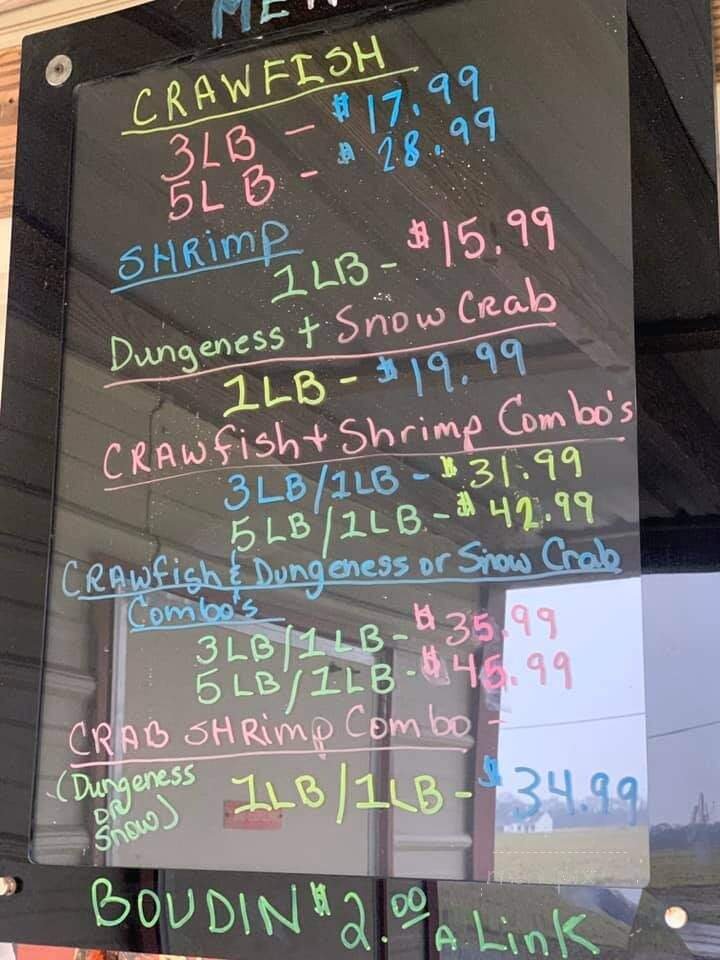 CRAWFISH
3LB - $17.99
5LB - $28.99
SHRimp
1LB - $15.99
Dungeness + Snow Crab
1LB - $19.99
CRAWfish + Shrimp Combo's
3LB/1LB - $31.99
5LB/1LB - $42.99
CRAWfish & Dungeness or Snow Crab
Combo's
3LB/1LB - $35.99
5LB/1LB - $45.99
CRAB SHRimp Combo -
(Dungeness
OR
Snow)
1LB/1LB - $34.99
BOUDIN $2.00 A Link